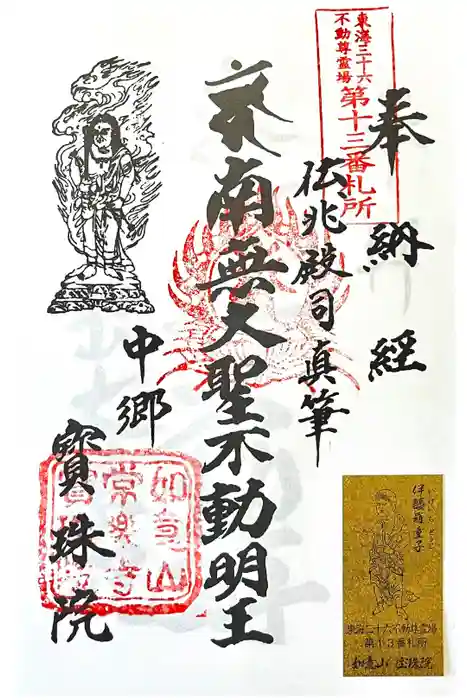 東海三十六
不動尊霊場
第十三番札所
奉納経
伝兆殿司真筆
南無大聖不動明王
中郷
寳珠院
如意山
常楽寺
伊醯羅童子
東海三十六不動尊霊場
第13番札所
如意山 宝珠院